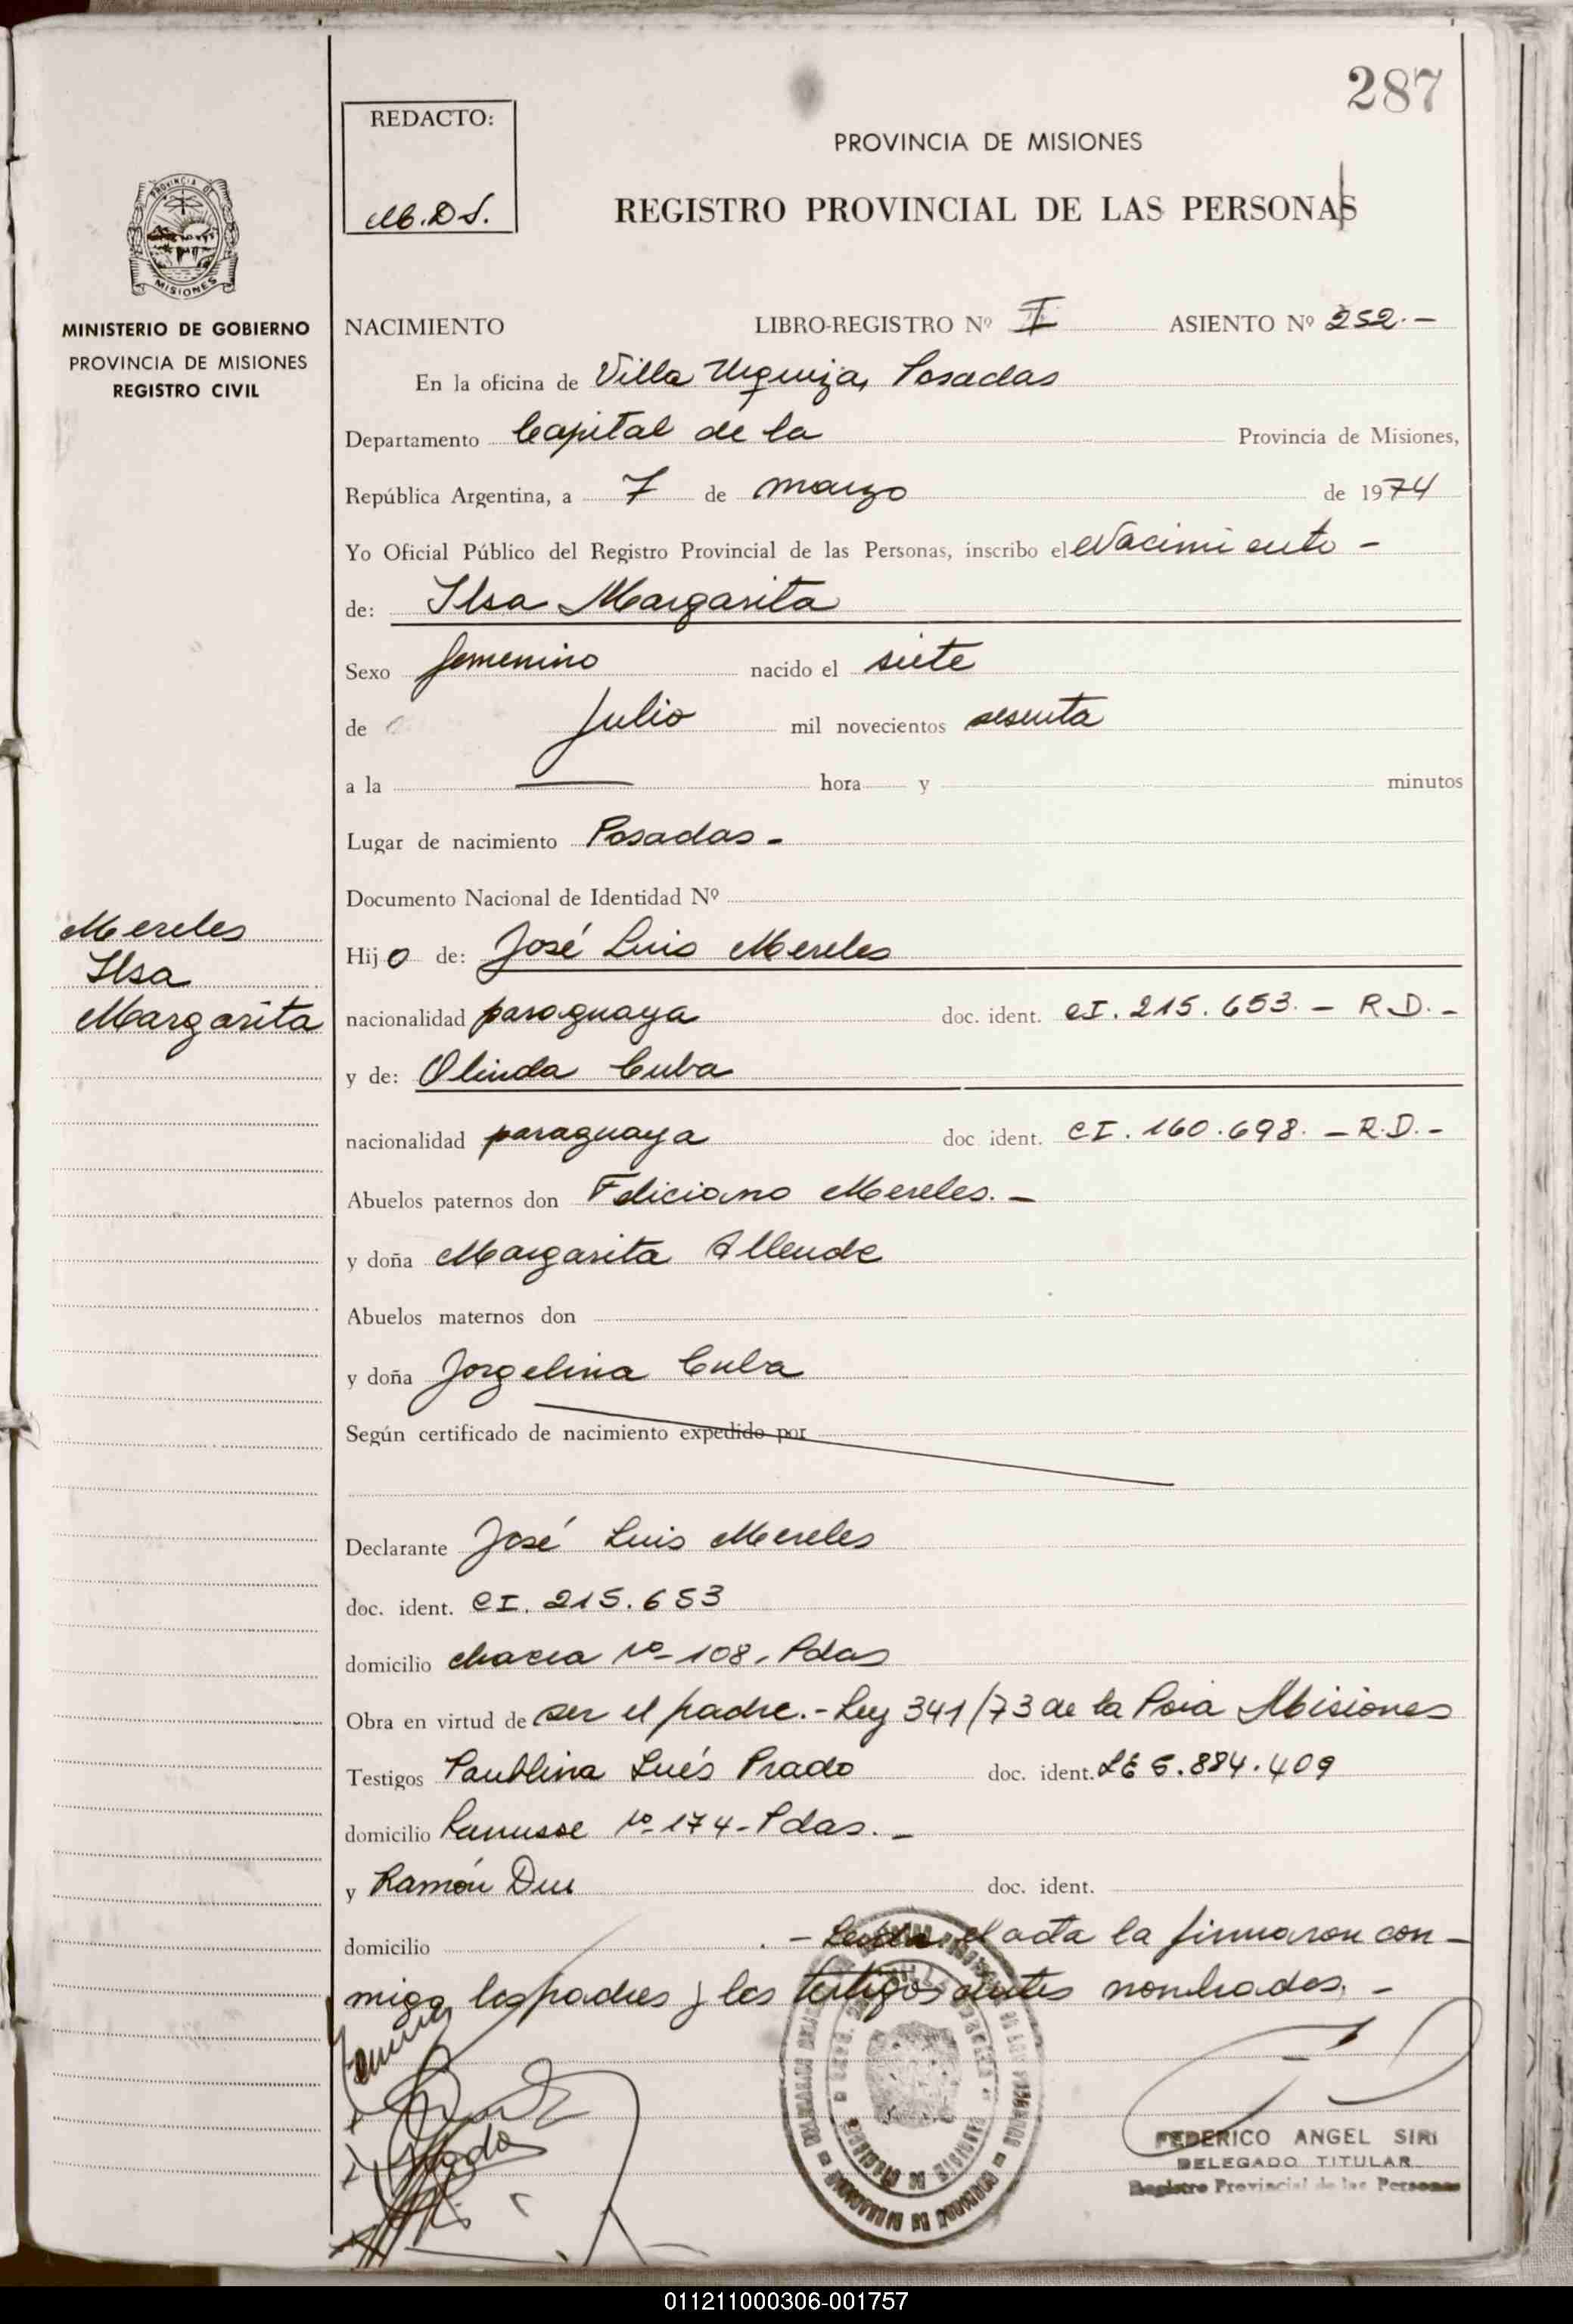 287
REDACTO:
M.D.S.
PROVINCIA DE MISIONES
REGISTRO PROVINCIAL DE LAS PERSONAS
PROVINCIA DE
MISIONES
MINISTERIO DE GOBIERNO
PROVINCIA DE MISIONES
REGISTRO CIVIL
NACIMIENTO LIBRO-REGISTRO Nº I ASIENTO Nº 252.-
En la oficina de Villa Urquiza, Posadas
Departamento Capital de la Provincia de Misiones,
República Argentina, a 7 de marzo de 1974
Yo Oficial Público del Registro Provincial de las Personas, inscribo el Nacimiento -
de: Ilsa Margarita
Sexo femenino nacido el siete
de Julio mil novecientos sesenta
a la — hora y minutos
Lugar de nacimiento Posadas -
Documento Nacional de Identidad Nº
Mereles
Ilsa
Margarita
Hijo de: José Luis Mereles
nacionalidad paraguaya doc. ident. CI. 215.653. - R.D. -
y de: Olinda Cuba
nacionalidad paraguaya doc ident. CI. 160.698. - R.D. -
Abuelos paternos don Feliciano Mereles. -
y doña Margarita Allende
Abuelos maternos don
y doña Jorgelina Cuba
Según certificado de nacimiento expedido por
Declarante José Luis Mereles
doc. ident. CI. 215.653
domicilio chacra Nº 108, Pdas
Obra en virtud de ser el padre. - Ley 341/73 de la Pcia Misiones
Testigos Inés Prado doc. ident. LE 6.884.409
domicilio Lanusse Nº 174 - Pdas. -
y Ramón doc. ident.
domicilio - Leída el acta la firmaron con-
migo los padres y los testigos antes nombrados. -
FEDERICO ANGEL SIRI
DELEGADO TITULAR
Registro Provincial de las Personas
011211000306-001757